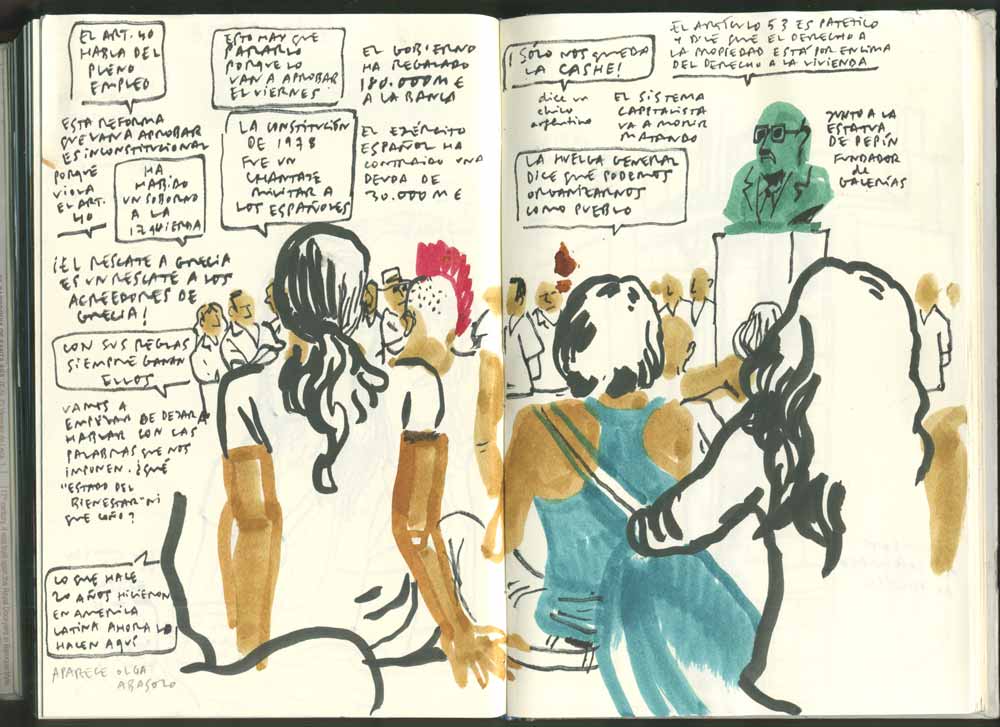 EL ART. 40
HABLA DEL
PLENO
EMPLEO
ESTA REFORMA
QUE VAN A APROBAR
ES INCONSTITUCIONAL
PORQUE
VIOLA
EL ART.
40
HA
HABIDO
UN SOBORNO
A LA
IZQUIERDA
ESTO HAY QUE
PARARLO
PORQUE LO
VAN A APROBAR
EL VIERNES
LA CONSTITUCIÓN
DE 1978
FUE UN
CHANTAJE
MILITAR A
LOS ESPAÑOLES
EL GOBIERNO
HA REGALADO
180.000 M €
A LA BANCA
EL EJÉRCITO
ESPAÑOL HA
CONTRAIDO UNA
DEUDA DE
30.000 M €
¡EL RESCATE A GRECIA
ES UN RESCATE A LOS
ACREEDORES DE
GRECIA!
CON SUS REGLAS
SIEMPRE GANAN
ELLOS
VAMOS A
EMPEZAR DE DEJAR A
HABLAR CON LAS
PALABRAS QUE NOS
IMPONEN. ¿QUÉ
"ESTADO DEL
BIENESTAR" NI
QUE COÑO?
LO QUE HACE
20 AÑOS HICIERON
EN AMERICA
LATINA AHORA LO
HACEN AQUÍ
APARECE OLGA
ABASOLO
¡SÓLO NOS QUEDA
LA CASHE!
dice un
chico
argentino
EL ARTÍCULO 53 ES PATETICO
Y DICE QUE EL DERECHO A
LA PROPIEDAD ESTÁ POR ENCIMA
DEL DERECHO A LA VIVIENDA
EL SISTEMA
CAPITALISTA
VA A MORIR
MATANDO
LA HUELGA GENERAL
DICE QUE PODEMOS
ORGANIZARNOS
COMO PUEBLO
JUNTO A LA
ESTATUA
DE PEPÍN
FUNDADOR
de
GALERÍAS